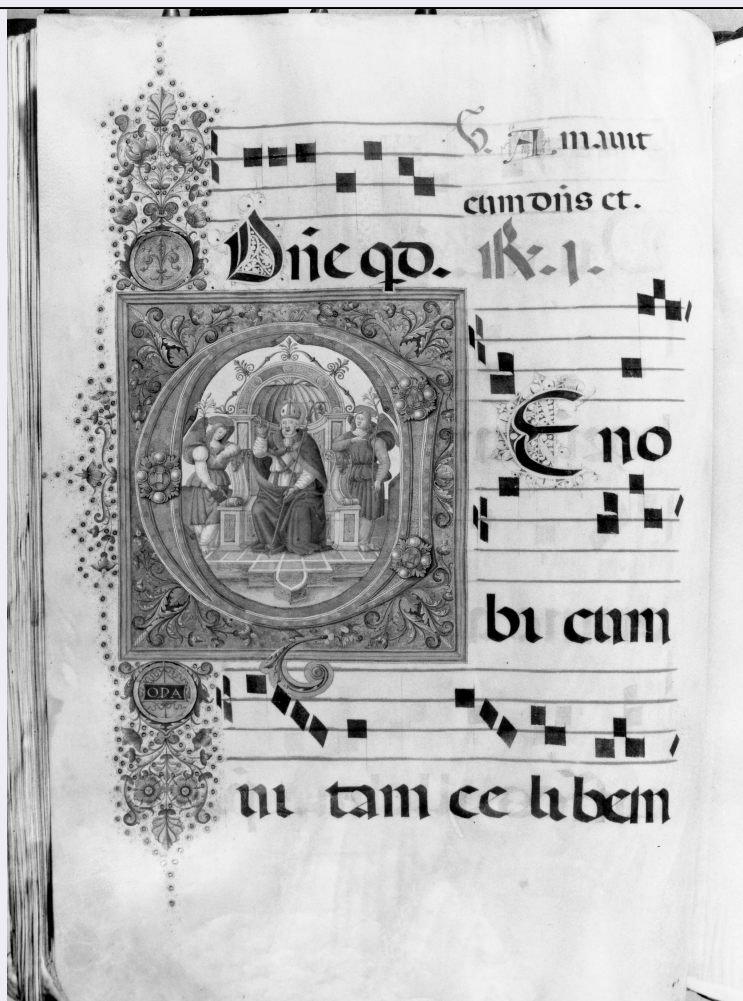 V. Amauit
eum dñs et.
Dñe qd. R. I.
Eno
bi cum
OPA
ui tam ce libem